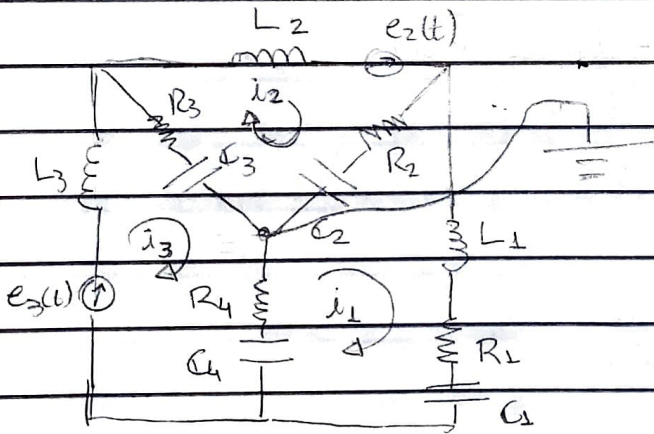 L2 e2(t)
R3 i2
L3 C3 R2
i3 C2 L1
e3(t) R4 i1
C4 R1
C1